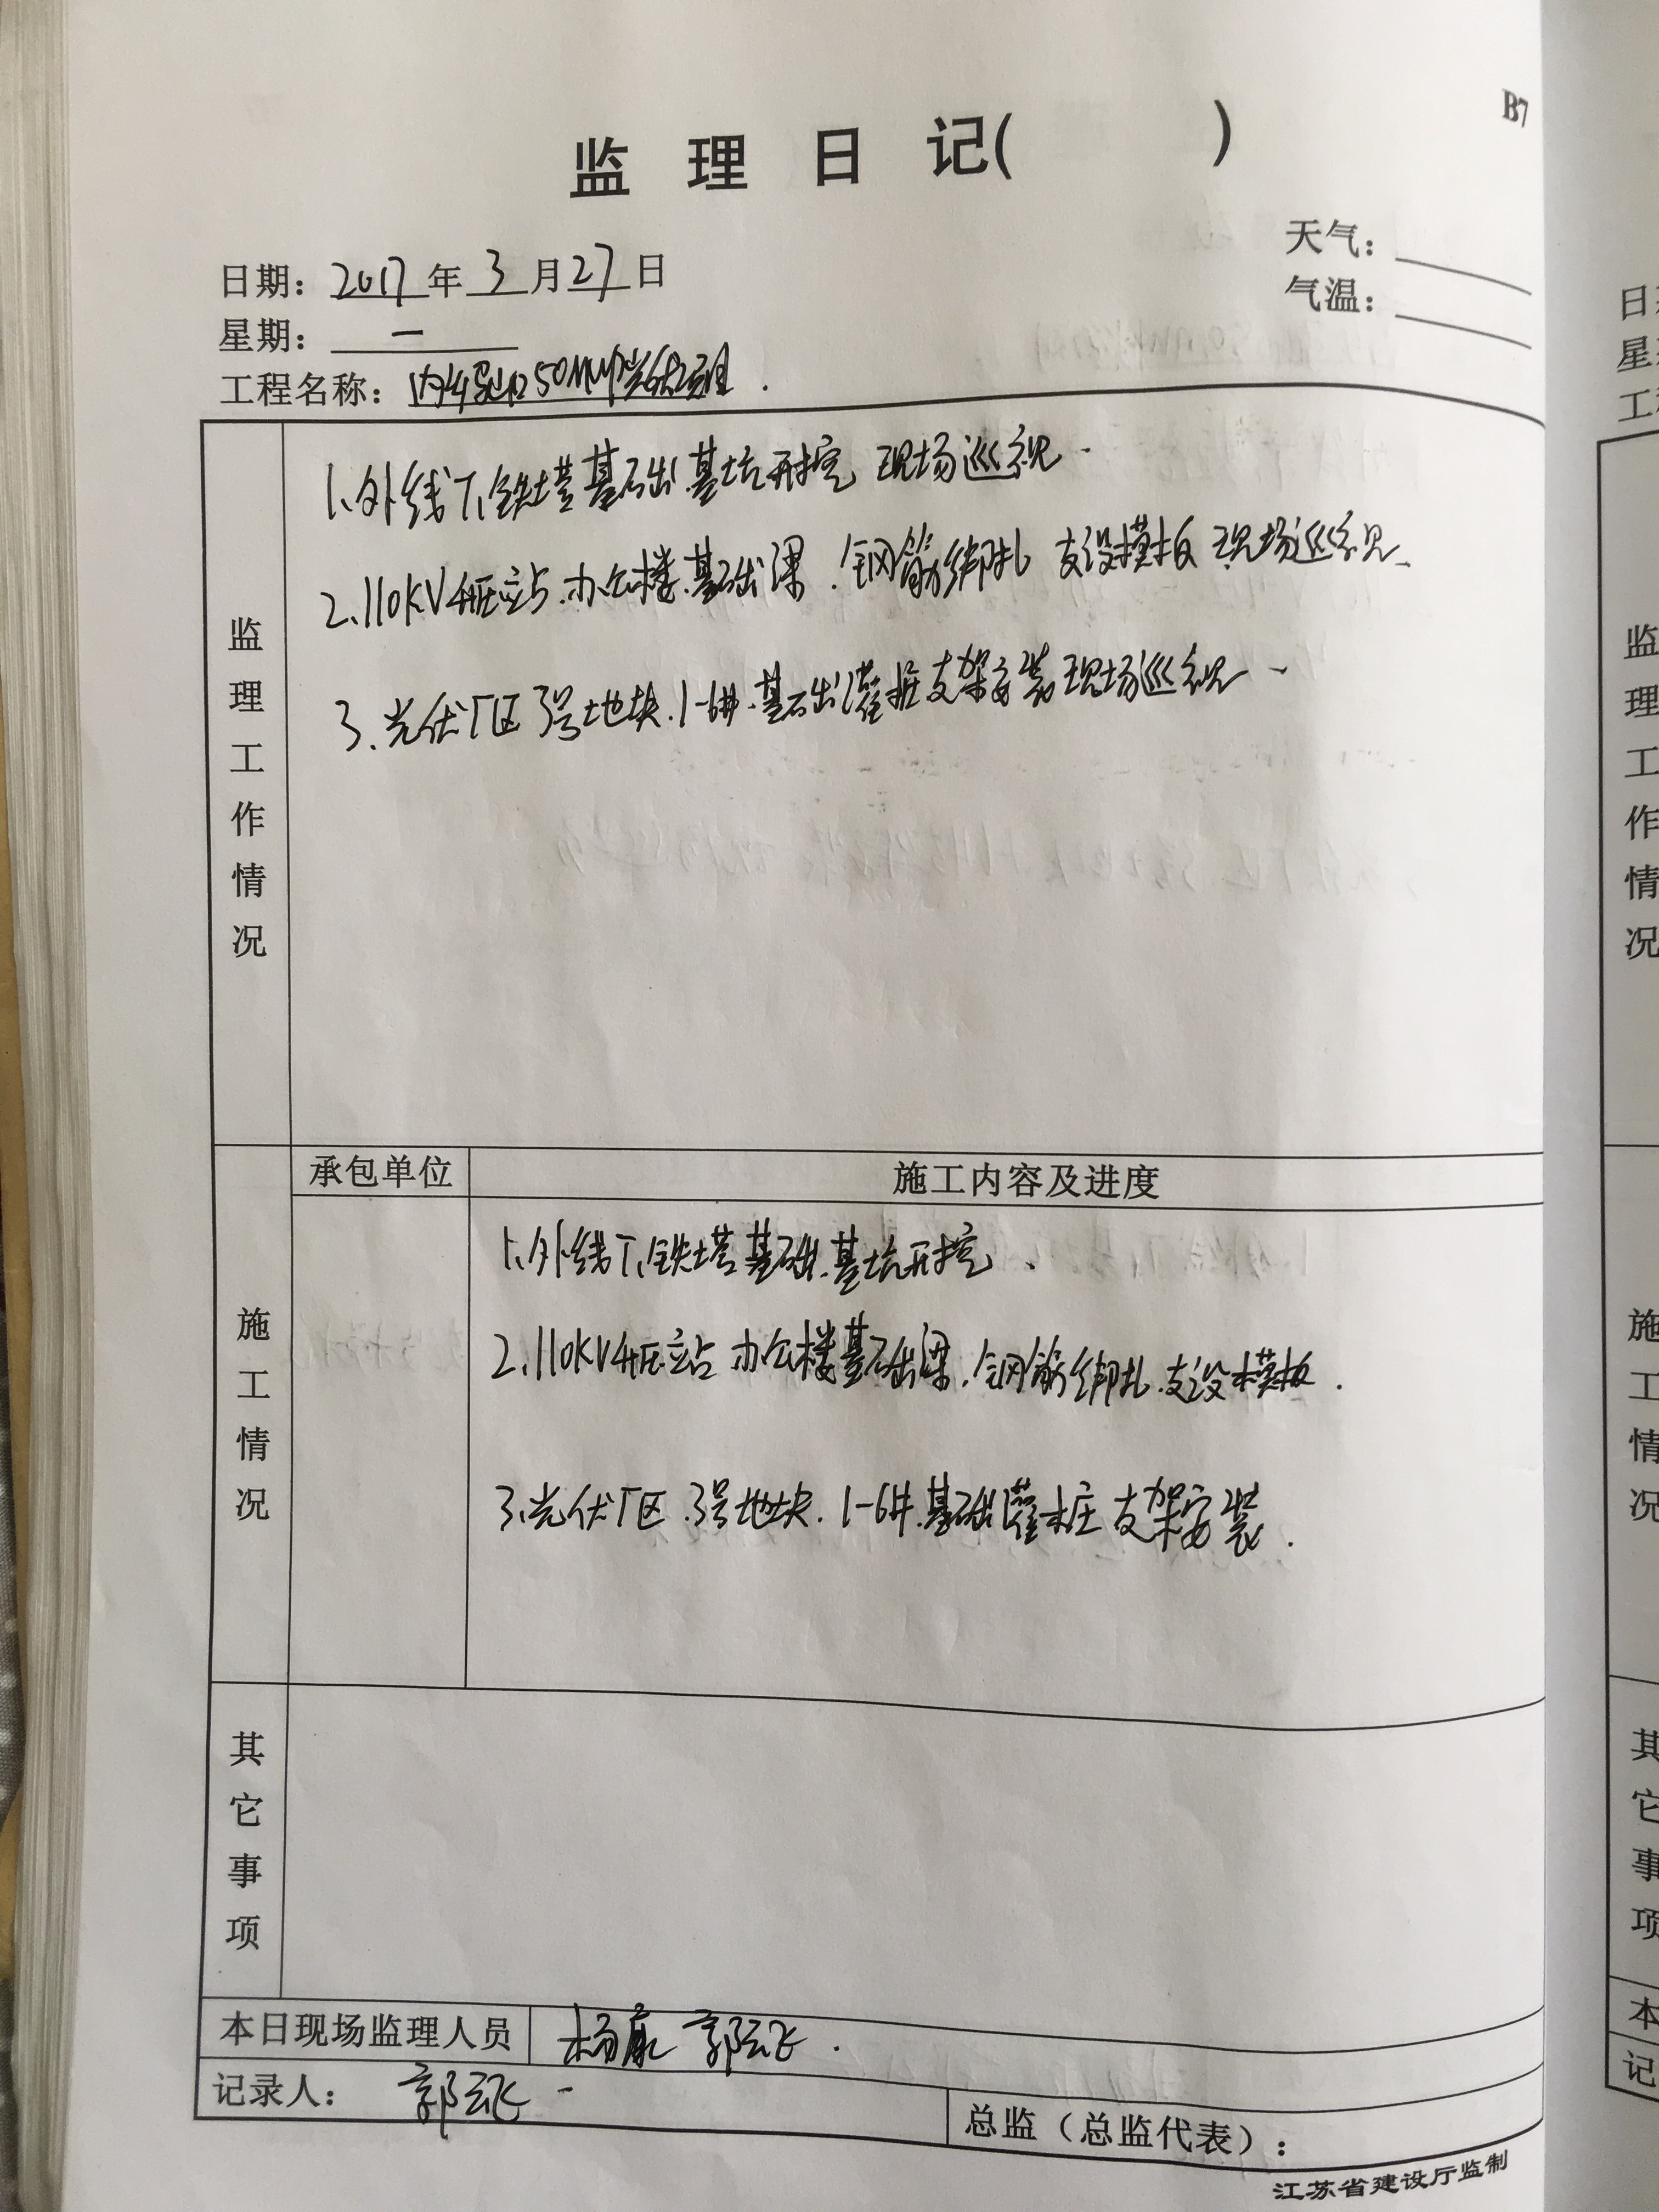 B7
监 理 日 记( )
天气:
日期: 2017 年 3 月 27 日
气温:
星期: 一
工程名称: 50MW光伏项目.
监理工作情况
1、外线T1铁塔基础.基坑开挖 现场巡视.
2、110KV升压站.办公楼.基础梁.钢筋绑扎 支设模板 现场巡视.
3、光伏厂区 3号地块.1-6#.基础灌桩 支架安装 现场巡视.
承包单位 施工内容及进度
施工情况
1、外线T1铁塔基础.基坑开挖.
2、110KV升压站 办公楼基础梁.钢筋绑扎.支设模板.
3、光伏厂区.3号地块.1-6#.基础灌桩 支架安装.
其它事项
本日现场监理人员 杨康 郭云飞.
记录人: 郭云飞
总监(总监代表):
江苏省建设厅监制
日
星
工
监理工作情况
施工情况
其它事项
本
记